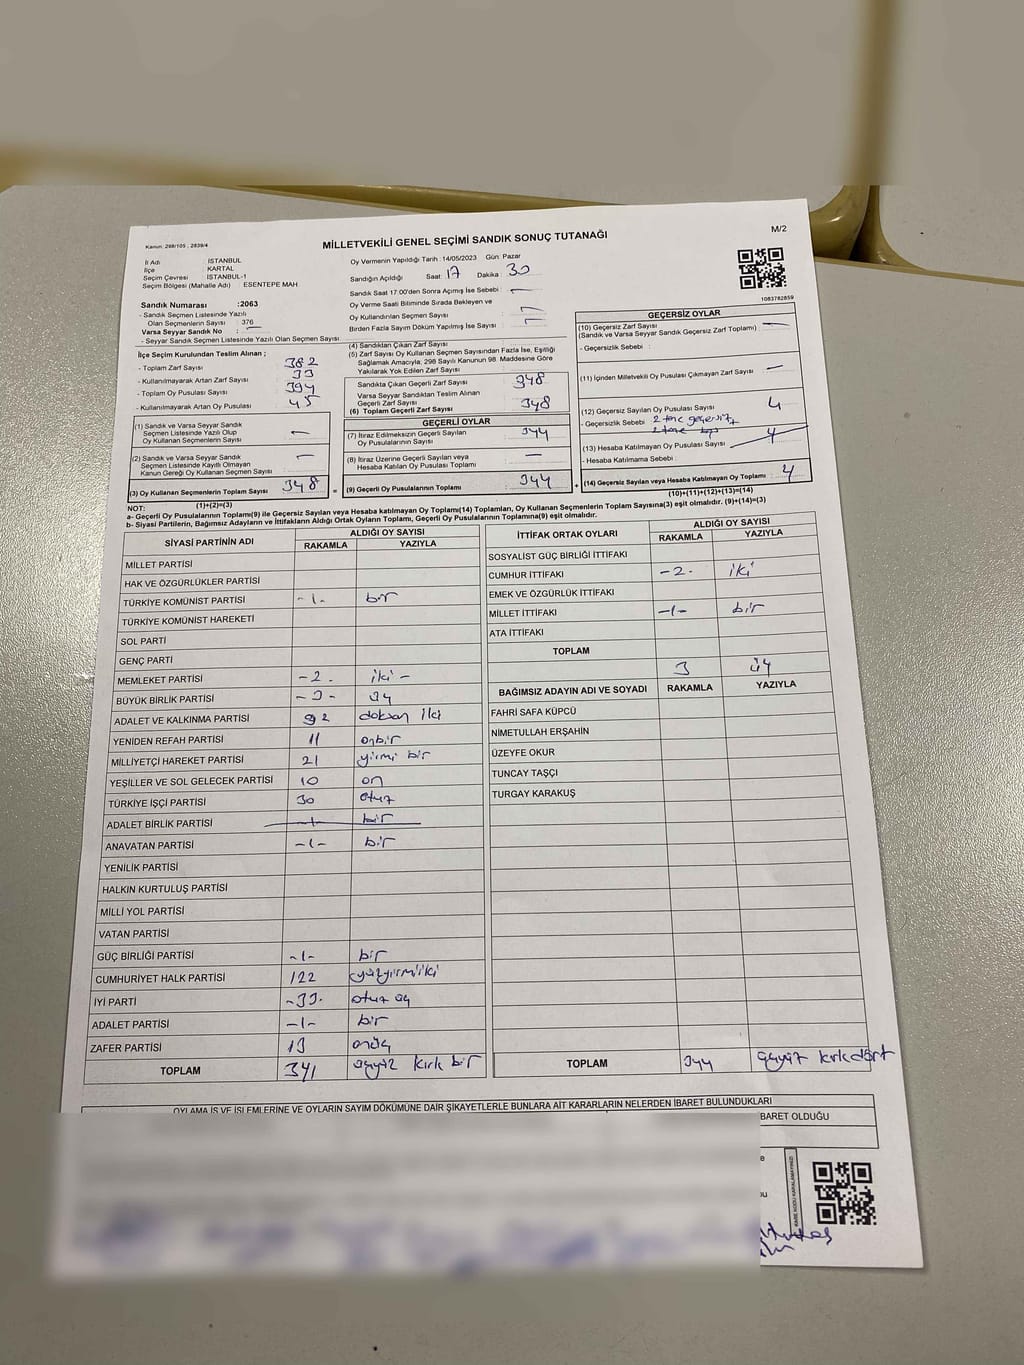 Kanun: 298/105 , 2839/4
MİLLETVEKİLİ GENEL SEÇİMİ SANDIK SONUÇ TUTANAĞI
M/2
İl Adı : İSTANBUL
İlçe : KARTAL
Seçim Çevresi : İSTANBUL-1
Seçim Bölgesi (Mahalle Adı) : ESENTEPE MAH
Sandık Numarası :2063
- Sandık Seçmen Listesinde Yazılı
Olan Seçmenlerin Sayısı : 376
Varsa Seyyar Sandık No : -
- Seyyar Sandık Seçmen Listesinde Yazılı Olan Seçmen Sayısı
Oy Vermenin Yapıldığı Tarih : 14/05/2023 Gün: Pazar
Sandığın Açıldığı Saat: 17 Dakika : 30
Sandık Saat 17.00'den Sonra Açımış İse Sebebi : -
Oy Verme Saati Bitiminde Sırada Bekleyen ve
Oy Kullandırılan Seçmen Sayısı : -
Birden Fazla Sayım Döküm Yapılmış İse Sayısı : -
1083782859
İlçe Seçim Kurulundan Teslim Alınan ;
- Toplam Zarf Sayısı : 382
- Kullanılmayarak Artan Zarf Sayısı : 33
- Toplam Oy Pusulası Sayısı : 394
- Kullanılmayarak Artan Oy Pusulası : 45
(1) Sandık ve Varsa Seyyar Sandık
Seçmen Listesinde Yazılı Olup
Oy Kullanan Seçmenlerin Sayısı : -
(2) Sandık ve Varsa Seyyar Sandık
Seçmen Listesinde Kayıtlı Olmayan
Kanun Gereği Oy Kullanan Seçmen Sayısı : -
(3) Oy Kullanan Seçmenlerin Toplam Sayısı : 348
(1)+(2)=(3)
(4) Sandıktan Çıkan Zarf Sayısı
(5) Zarf Sayısı Oy Kullanan Seçmen Sayısından Fazla İse, Eşitliği
Sağlamak Amacıyla, 298 Sayılı Kanunun 98. Maddesine Göre
Yakılarak Yok Edilen Zarf Sayısı :
Sandıkta Çıkan Geçerli Zarf Sayısı : 348
Varsa Seyyar Sandıktan Teslim Alınan
Geçerli Zarf Sayısı
(6) Toplam Geçerli Zarf Sayısı : 348
GEÇERLİ OYLAR
(7) İtiraz Edilmeksizin Geçerli Sayılan
Oy Pusulalarının Sayısı : 344
(8) İtiraz Üzerine Geçerli Sayılan veya
Hesaba Katılan Oy Pusulası Toplamı : -
= (9) Geçerli Oy Pusulalarının Toplamı : 344
GEÇERSİZ OYLAR
(10) Geçersiz Zarf Sayısı : -
(Sandık ve Varsa Seyyar Sandık Geçersiz Zarf Toplamı)
- Geçersizlik Sebebi :
(11) İçinden Milletvekili Oy Pusulası Çıkmayan Zarf Sayısı : -
(12) Geçersiz Sayılan Oy Pusulası Sayısı : 4
- Geçersizlik Sebebi : 2 tane geçersiz
2 tane
(13) Hesaba Katılmayan Oy Pusulası Sayısı : 4
- Hesaba Katılmama Sebebi :
+ (14) Geçersiz Sayılan veya Hesaba Katılmayan Oy Toplamı : 4
(10)+(11)+(12)+(13)=(14)
NOT:
a- Geçerli Oy Pusulalarının Toplamı(9) ile Geçersiz Sayılan veya Hesaba katılmayan Oy Toplamı(14) Toplamları, Oy Kullanan Seçmenlerin Toplam Sayısına(3) eşit olmalıdır. (9)+(14)=(3)
b- Siyasi Partilerin, Bağımsız Adayların ve İttifakların Aldığı Ortak Oyların Toplamı, Geçerli Oy Pusulalarının Toplamına(9) eşit olmalıdır.
SİYASİ PARTİNİN ADI ALDIĞI OY SAYISI
RAKAMLA YAZIYLA
MİLLET PARTİSİ
HAK VE ÖZGÜRLÜKLER PARTİSİ
TÜRKİYE KOMÜNİST PARTİSİ -1- bir
TÜRKİYE KOMÜNİST HAREKETİ
SOL PARTİ
GENÇ PARTİ
MEMLEKET PARTİSİ -2- iki -
BÜYÜK BİRLİK PARTİSİ -3- üç
ADALET VE KALKINMA PARTİSİ 92 doksan iki
YENİDEN REFAH PARTİSİ 11 onbir
MİLLİYETÇİ HAREKET PARTİSİ 21 yirmi bir
YEŞİLLER VE SOL GELECEK PARTİSİ 10 on
TÜRKİYE İŞÇİ PARTİSİ 30 otuz
ADALET BİRLİK PARTİSİ -1- bir
ANAVATAN PARTİSİ -1- bir
YENİLİK PARTİSİ
HALKIN KURTULUŞ PARTİSİ
MİLLİ YOL PARTİSİ
VATAN PARTİSİ
GÜÇ BİRLİĞİ PARTİSİ -1- bir
CUMHURİYET HALK PARTİSİ 122 yüzyirmiiki
İYİ PARTİ -33- otuz üç
ADALET PARTİSİ -1- bir
ZAFER PARTİSİ 13 onüç
TOPLAM 341 üçyüz kırk bir
İTTİFAK ORTAK OYLARI ALDIĞI OY SAYISI
RAKAMLA YAZIYLA
SOSYALİST GÜÇ BİRLİĞİ İTTİFAKI
CUMHUR İTTİFAKI -2- iki
EMEK VE ÖZGÜRLÜK İTTİFAKI
MİLLET İTTİFAKI -1- bir
ATA İTTİFAKI
TOPLAM 3 üç
BAĞIMSIZ ADAYIN ADI VE SOYADI RAKAMLA YAZIYLA
FAHRİ SAFA KÜPCÜ
NİMETULLAH ERŞAHİN
ÜZEYFE OKUR
TUNCAY TAŞÇI
TURGAY KARAKUŞ
TOPLAM 344 üçyüz kırkdört
OYLAMA İŞ VE İŞLEMLERİNE VE OYLARIN SAYIM DÖKÜMÜNE DAİR ŞİKAYETLERLE BUNLARA AİT KARARLARIN NELERDEN İBARET BULUNDUKLARI
BARET OLDUĞU
KARE KODU KARALAMAYINIZ!